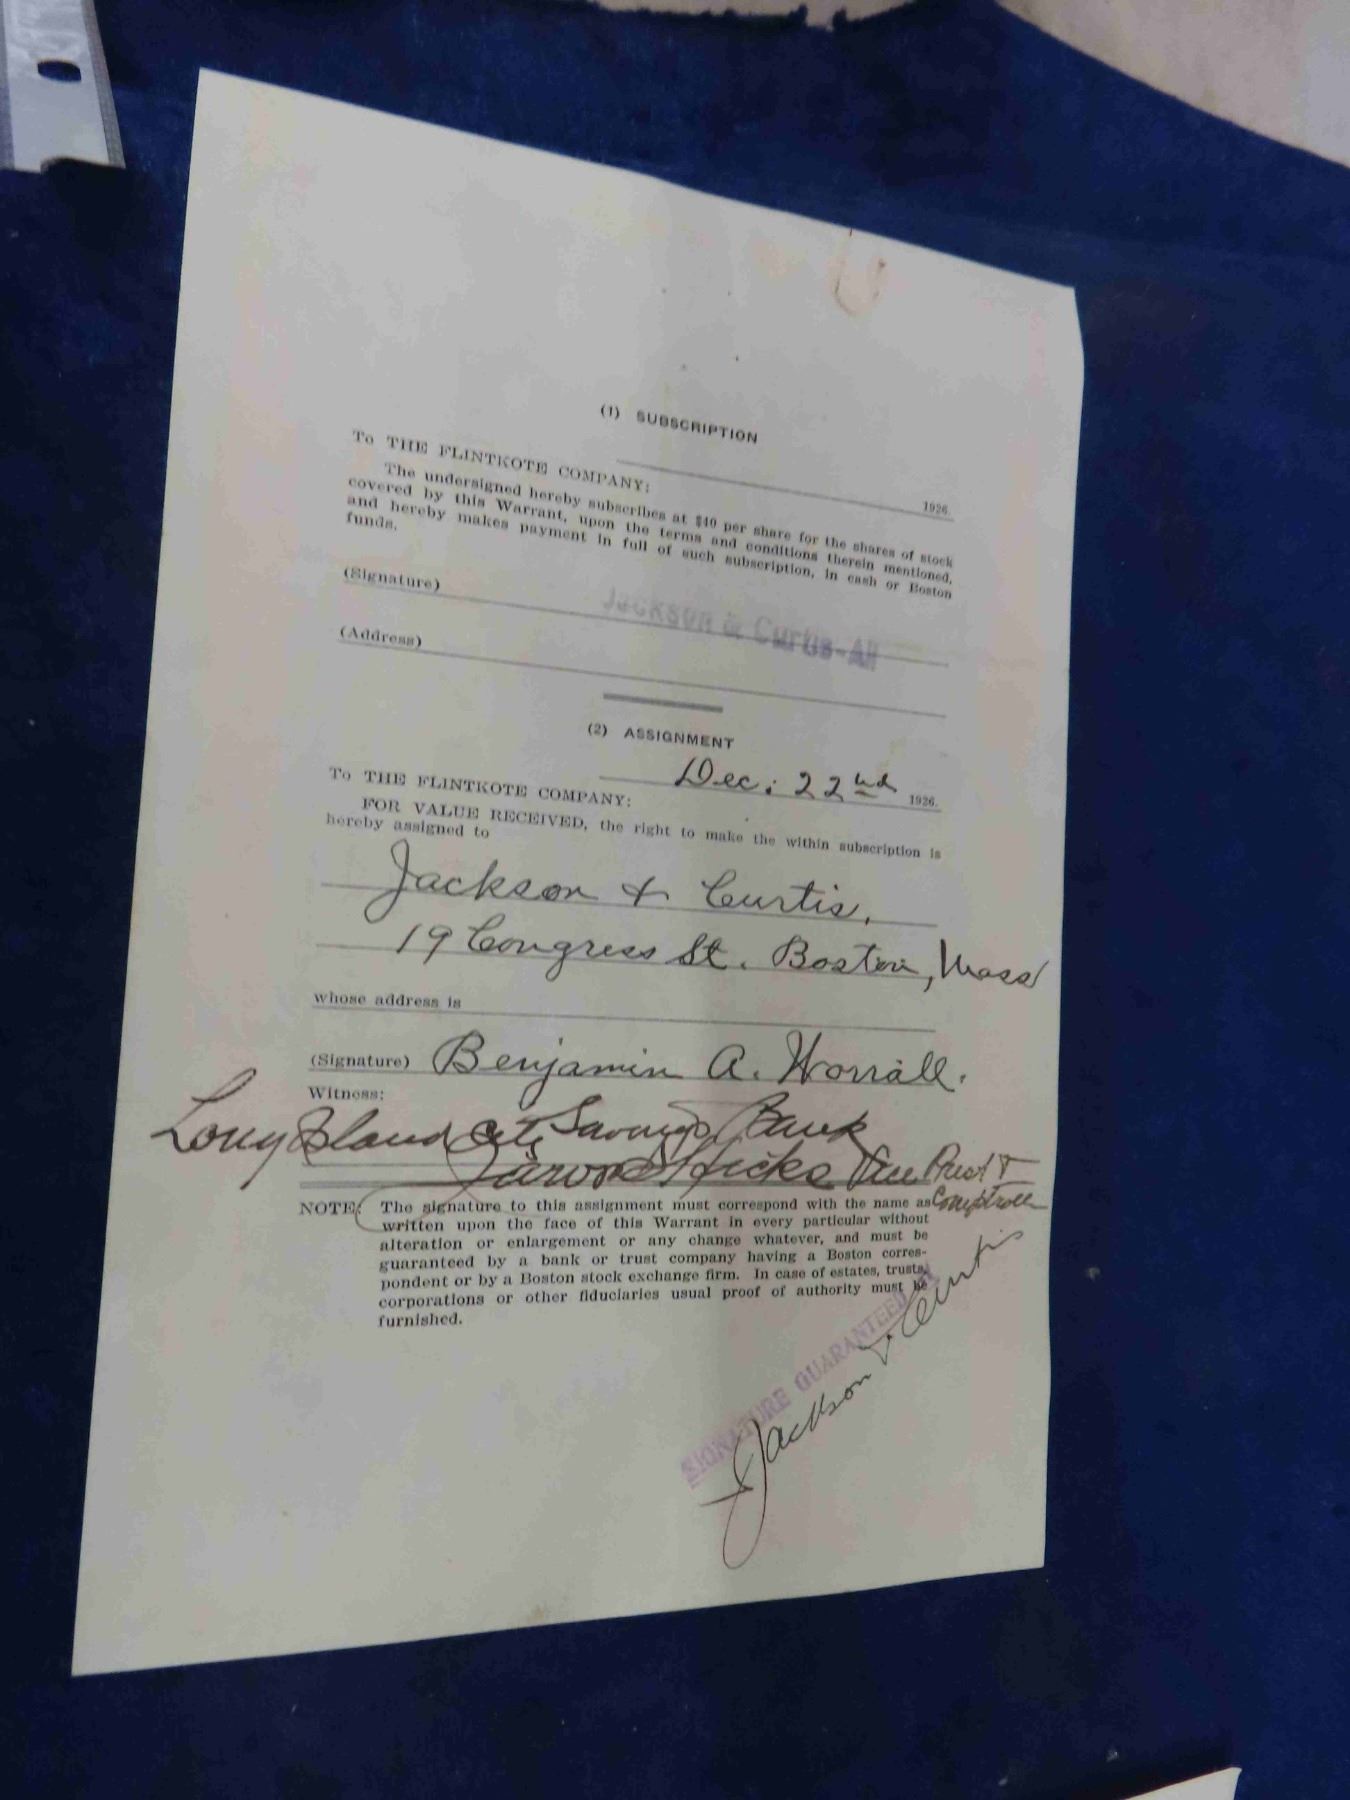 (1) SUBSCRIPTION
1926.
To THE FLINTKOTE COMPANY:
The undersigned hereby subscribes at $40 per share for the shares of stock
covered by this Warrant, upon the terms and conditions therein mentioned,
and hereby makes payment in full of such subscription, in cash or Boston
funds.
(Signature)
Jackson & Curtis-
(Address)
(2) ASSIGNMENT
Dec. 22nd 1926.
To THE FLINTKOTE COMPANY:
FOR VALUE RECEIVED, the right to make the within subscription is
hereby assigned to
Jackson & Curtis,
19 Congress St. Boston, Mass
whose address is
(Signature) Benjamin A. Worrall.
Witness:
Long Island City Savings Bank
Hicks Vice Prest &
Comptroller
NOTE: The signature to this assignment must correspond with the name as
written upon the face of this Warrant in every particular without
alteration or enlargement or any change whatever, and must be
guaranteed by a bank or trust company having a Boston corres-
pondent or by a Boston stock exchange firm. In case of estates, trusts,
corporations or other fiduciaries usual proof of authority must be
furnished.
SIGNATURE GUARANTEED
Jackson & Curtis